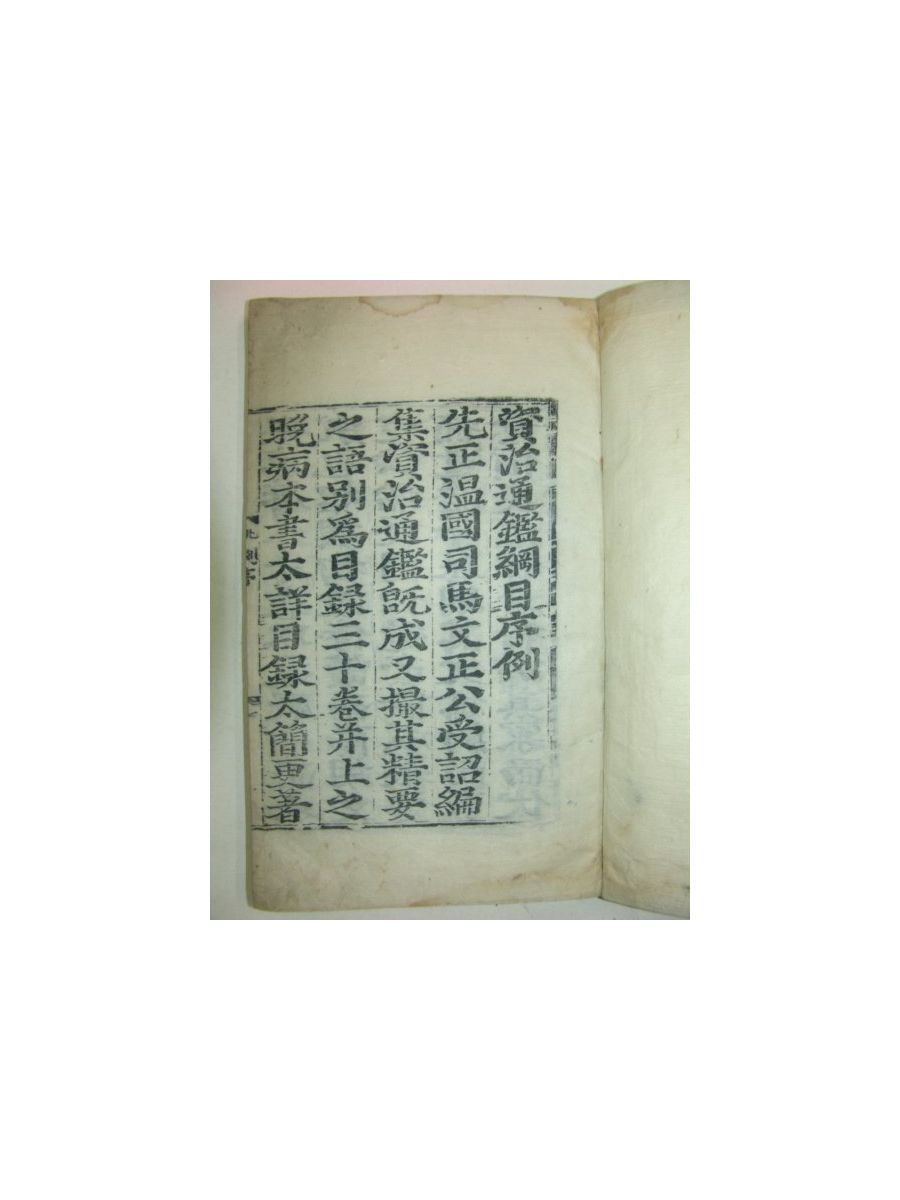 資治通鑑綱目序例
先正温國司馬文正公受詔編
集資治通鑑旣成又撮其精要
之語别爲目録三十卷并上之
晩病本書太詳目録太簡更著